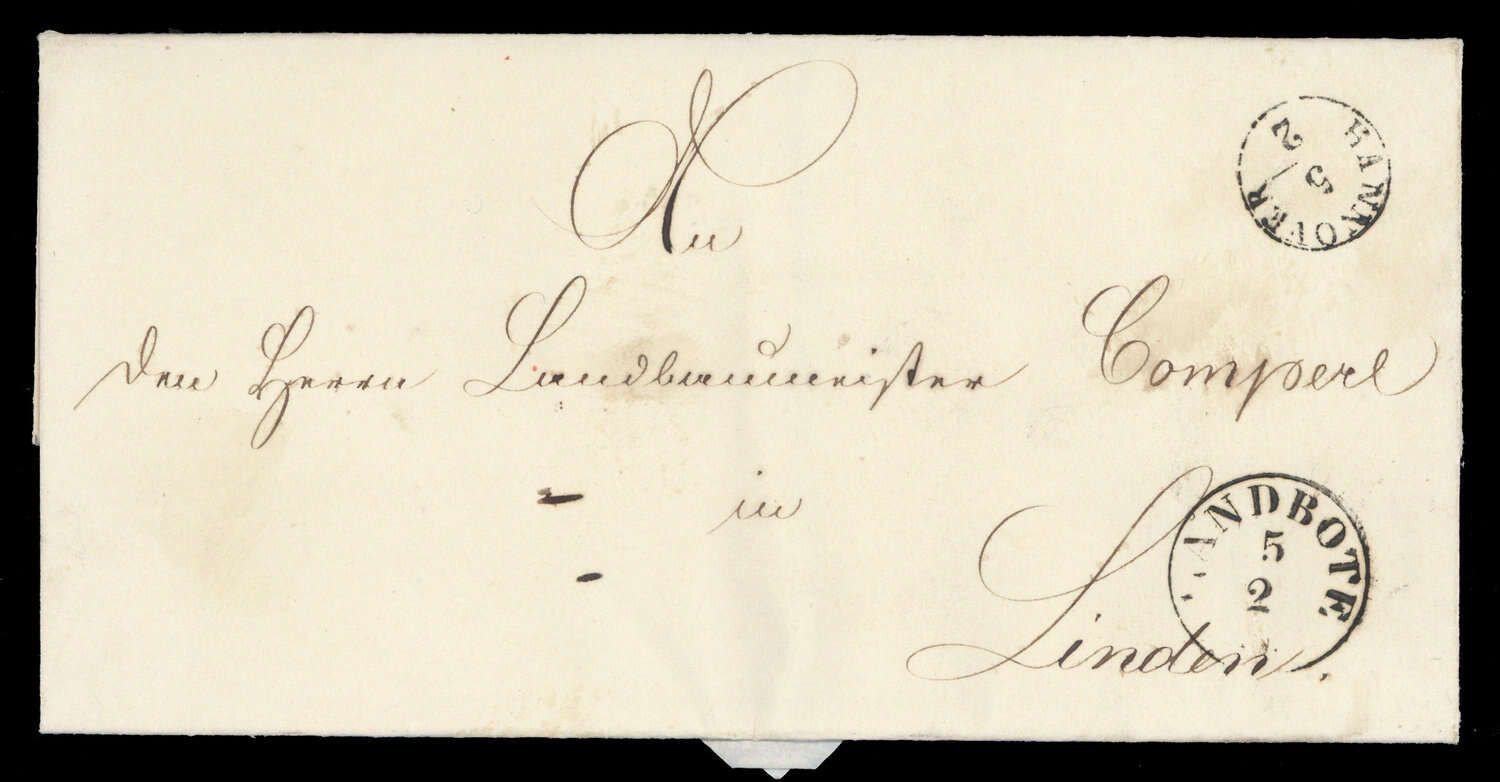 An
den Herrn Landbaumeister Comperl
in
Linden.
HANNOVER
5/2
ANDBOTE
5
2